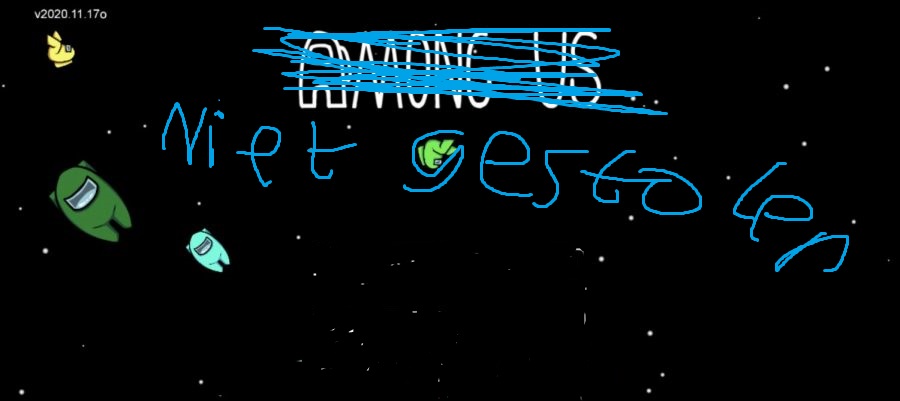 v2020.11.17o
AMONG US
Niet gestolen